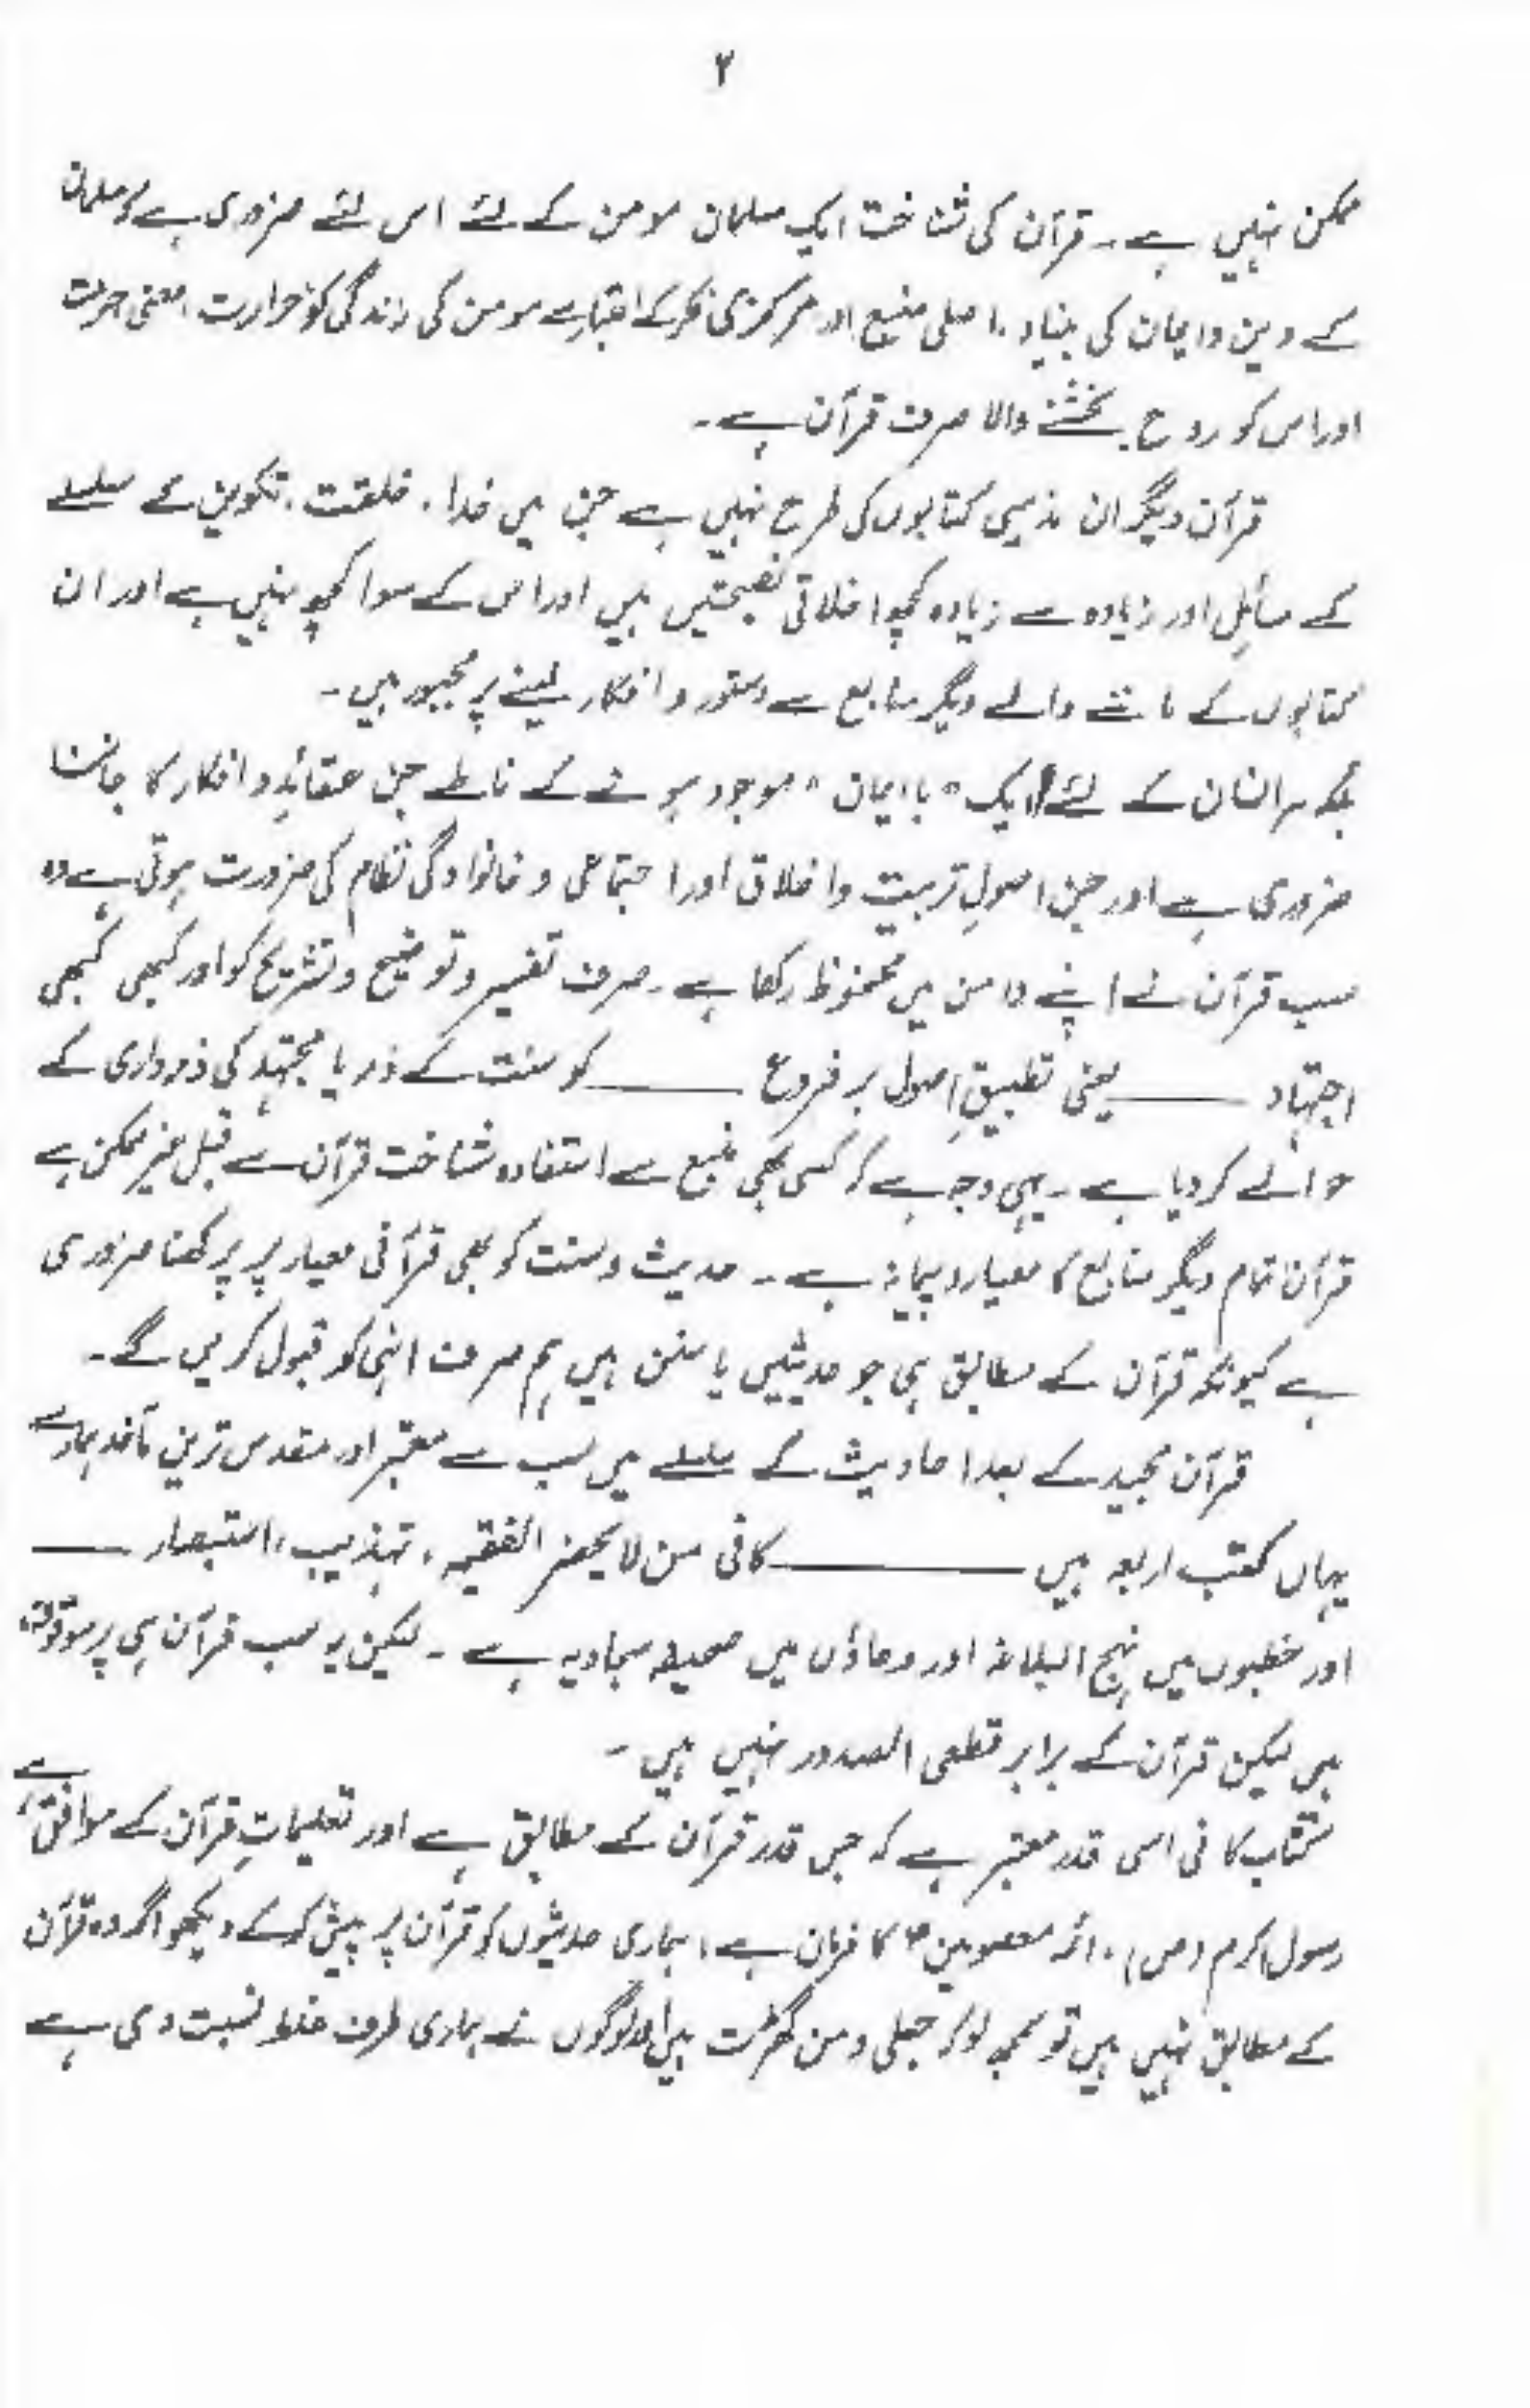 ۲
ممکن نہیں ہے۔ قرآن کی شناخت ایک مسلمان مومن کے لئے اس لئے ضروری ہے کہ مسلمان
کے دین وایمان کی بنیاد، اصلی منبع اور مرکزی فکر کے اعتبار سے مومن کی زندگی کو حرارت، معنی حرمت
اور اس کو روح بخشنے والا صرف قرآن ہے۔
قرآن دیگر ان مذہبی کتابوں کی طرح نہیں ہے جن میں خدا، خلقت، تکوین کے سلسلے
کے مسائل اور زیادہ سے زیادہ کچھ اخلاقی نصیحتیں ہیں اور اس کے سوا کچھ نہیں ہے اور ان
کتابوں کے ماننے والے دیگر منابع سے دستور و افکار لینے پر مجبور ہیں۔
بلکہ ہر انسان کے لئے ایک "باایمان" موجود ہونے کے ناطے جن عقائد و افکار کا جاننا
ضروری ہے اور جن اصولِ تربیت واخلاق اور اجتماعی و خانوادگی نظام کی ضرورت ہوتی ہے وہ
سب قرآن نے اپنے دامن میں محفوظ رکھا ہے۔ صرف تفسیر و توضیح و تشریح کو اور کبھی کبھی
اجتہاد ــــــ یعنی تطبیقِ اصول بر فروع ــــــ کو سنت کے ذریعہ یا مجتہد کی ذمہ داری کے
حوالے کر دیا ہے۔ یہی وجہ ہے کہ کسی بھی منبع سے استفادہ شناخت قرآن سے قبل غیر ممکن ہے
قرآن تمام دیگر منابع کا معیار و پیمانہ ہے۔ حدیث و سنت کو بھی قرآنی معیار پر پرکھنا ضروری
ہے کیونکہ قرآن کے مطابق ہی جو حدیثیں یا سنن ہیں ہم صرف انہی کو قبول کریں گے۔
قرآن مجید کے بعد احادیث کے سلسلے میں سب سے معتبر اور مقدس ترین مآخذ ہمارے
یہاں کتب اربعہ ہیں ــــــ کافی من لا یحضر الفقیہ، تہذیب، استبصار ــــــ
اور خطبوں میں نہج البلاغہ اور دعاؤں میں صحیفہ سجادیہ ہے۔ لیکن یہ سب قرآن ہی پر موقوف
ہیں لیکن قرآن کے برابر قطعی الصدور نہیں ہیں۔
کتاب کافی اسی قدر معتبر ہے کہ جس قدر قرآن کے مطابق ہے اور تعلیماتِ قرآن کے موافق ہے
رسول اکرم (ص)، ائمہ معصومین ؑ کا فرمان ہے، ہماری حدیثوں کو قرآن پر پیش کر کے دیکھو اگر وہ قرآن
کے مطابق نہیں ہیں تو سمجھ لو کہ جعلی و من گھڑت ہیں اور لوگوں نے ہماری طرف غلط نسبت دی ہے